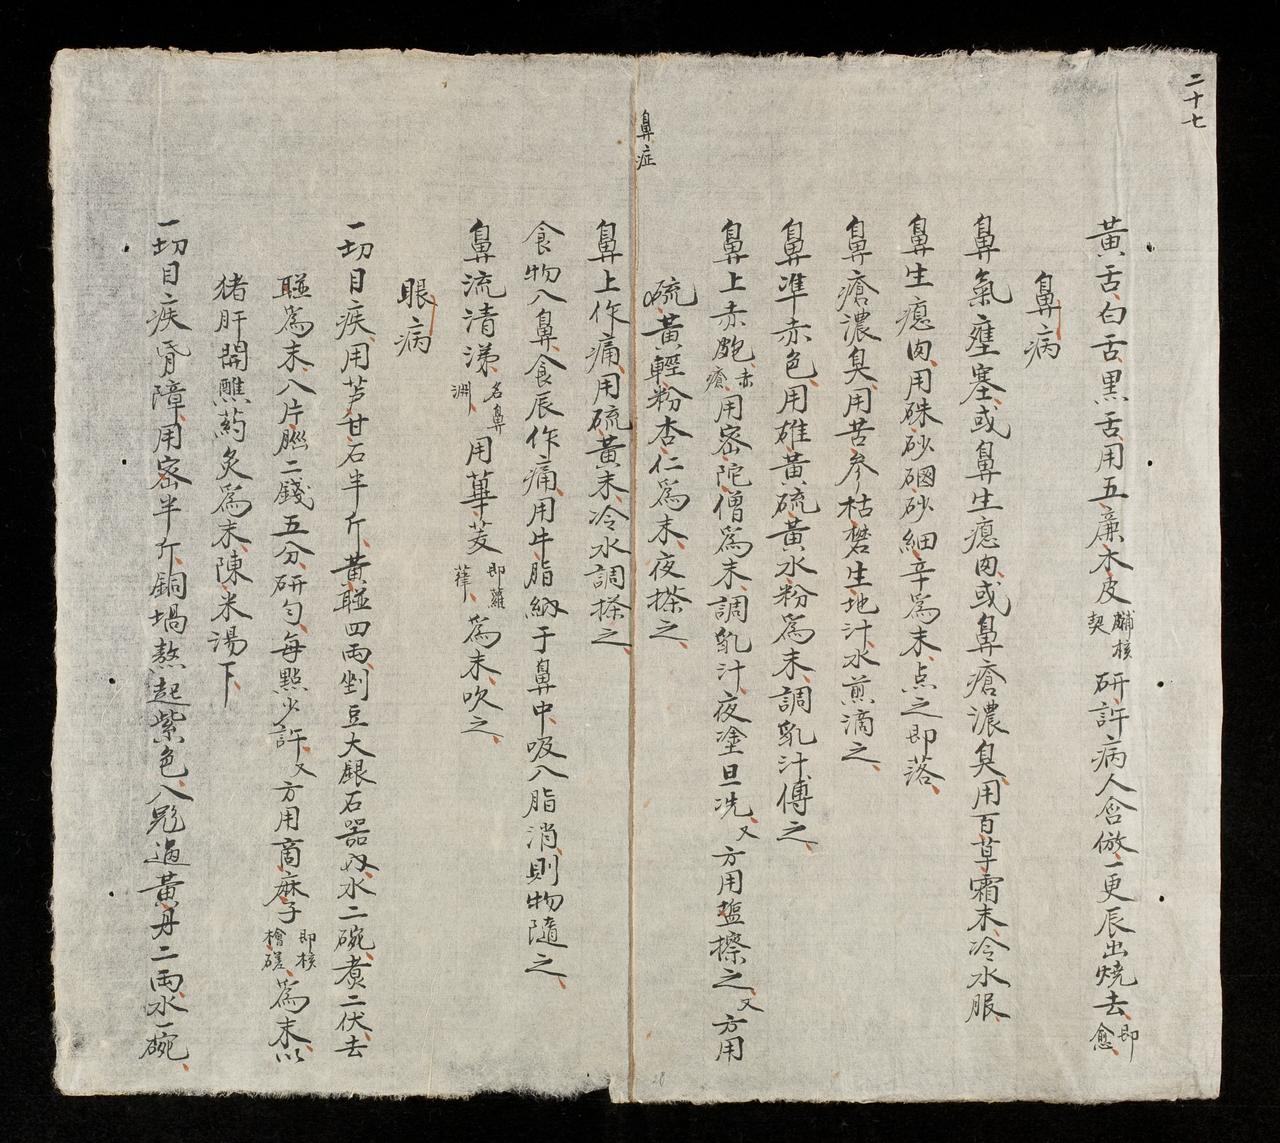 二十七
黃舌白舌黑舌用五廉木皮𦓡核契研許病人含倣一更辰出燒去即愈
鼻病
鼻氣壅塞或鼻生瘜肉或鼻瘡濃臭用百草霜末冷水服
鼻生瘜肉用硃砂硇砂細辛為末点之即落
鼻瘡濃臭用苦參枯礬生地汁水煎滴之
鼻準赤色用雄黃硫黃水粉為末調乳汁傅之
鼻上赤皰赤瘡用密陀僧為末調乳汁夜塗旦洗又方用塩擦之又方用
硫黃輕粉杏仁為末夜搽之
鼻症
鼻上作痛用硫黃末冷水調搽之
食物入鼻食辰作痛用牛脂納于鼻中吸入脂消則物隨之
鼻流清涕名鼻淵用蓽茇即蘿葎為末吹之
眼病
一切目疾用芦甘石半斤黃𦗁四兩剉豆大銀石器內水二碗煮二伏去
𦗁為末入片腦二錢五分研勻每點少許又方用商麻子即核檜磋為末以
猪肝開醮药炙為末陳米湯下
一切目疾昏障用密半斤銅堝熬起紫色入飛過黃丹二兩水一碗